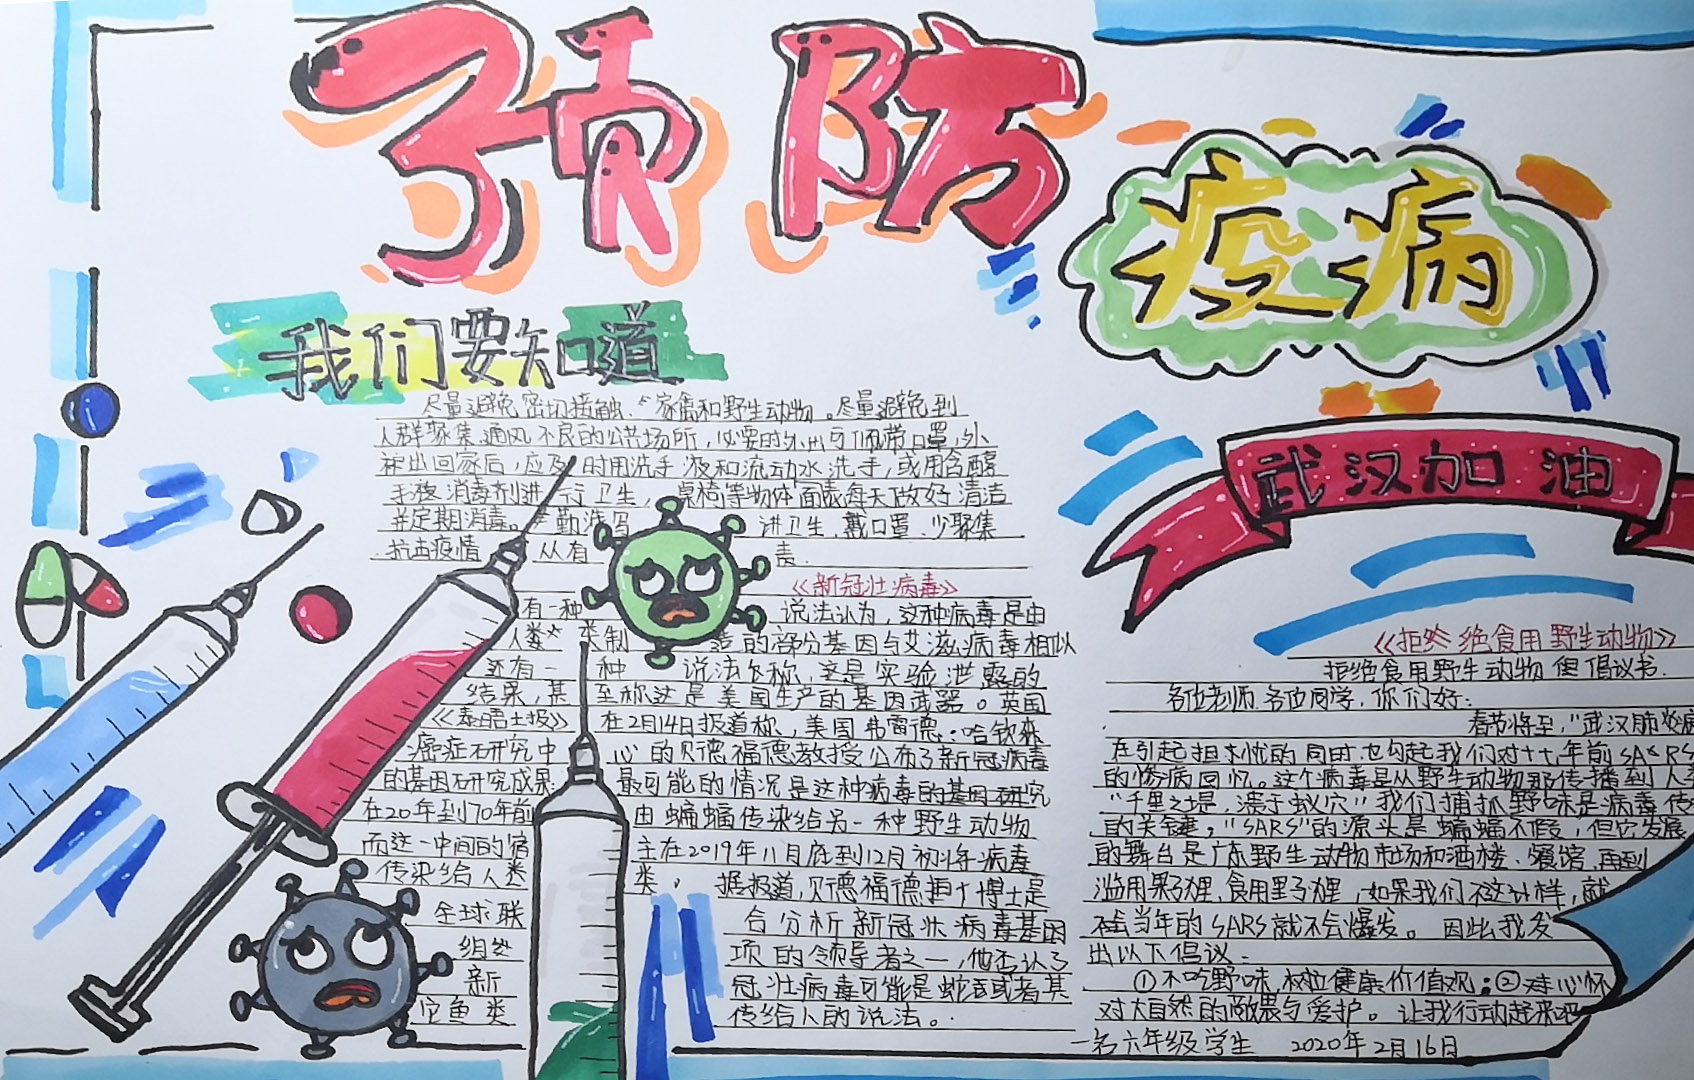 预防
疫病
我们要知道
尽量避免密切接触、家禽和野生动物。尽量避免到
人群聚集通风不良的公共场所，必要时外出可佩带口罩，外
出回家后，应及时用洗手液和流动水洗手，或用含醇
手 消毒剂进行卫生，桌椅等物体面表每天做好清洁
并定期消毒。勤洗 讲卫生，戴口罩，少聚集
抗击疫情 从有 责
《新冠壮病毒》
有一种 说法认为，这种病毒是由
人类 类制 造的部分基因与艾滋病毒相似
还有一 种 说法称，这是实验泄露的
结果，甚 至称这是美国生产的基因武器。英国
《泰晤士报》 在2月14日报道称，美国弗雷德·哈钦森
癌症研究中 心的贝德福德教授公布了新冠病毒
的基因研究成果: 最可能的情况是这种病毒的基因研究
在20年到70年前 由蝙蝠传染给另一种野生动物
而这一中间的宿 主在2019年11月底到12月初将病毒
传染给人类 类， 据报道，贝德福德 博士是
全球联 合分析新冠状病毒基因
组 项的领导者之一，他否认了
新 冠壮病毒可能是蛇 或者其
它鱼类 传给人的说法。
武汉加油
《拒 绝食用野生动物》
拒绝食用野生动物 倡议书.
各位老师.各位同学，你们好:
春节将至，"武汉肺炎病
在引起担 忧的同时，也勾起我们对十七年前SARS
的惨病回忆。这个病毒是从野生动物那传播到人类
"千里之堤，溃于蚁穴"我们捕抓野味是病毒传
的关键，"SARS"的源头是蝙蝠不假，但它发展
的舞台是广东野生动物市场和酒楼、餐馆，再到
滥用果子狸，食用果子狸，如果我们不这 样，就
不会当年的SARS就不会爆发。因此我发
出以下倡议:
①不吃野味，树立健康价值观；②对心怀
对大自然的敬畏与爱护。让我行动起来吧
一名六年级学生 2020年2月16日